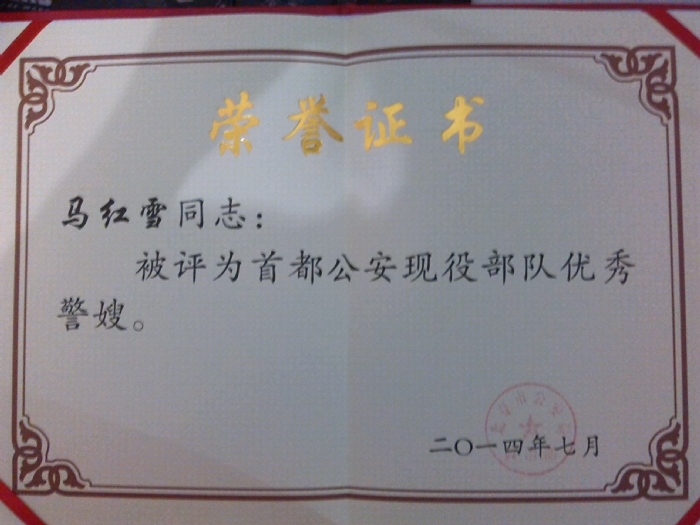 荣誉证书
马红雪同志：
被评为首都公安现役部队优秀
警嫂。
北京市公安局
二〇一四年七月